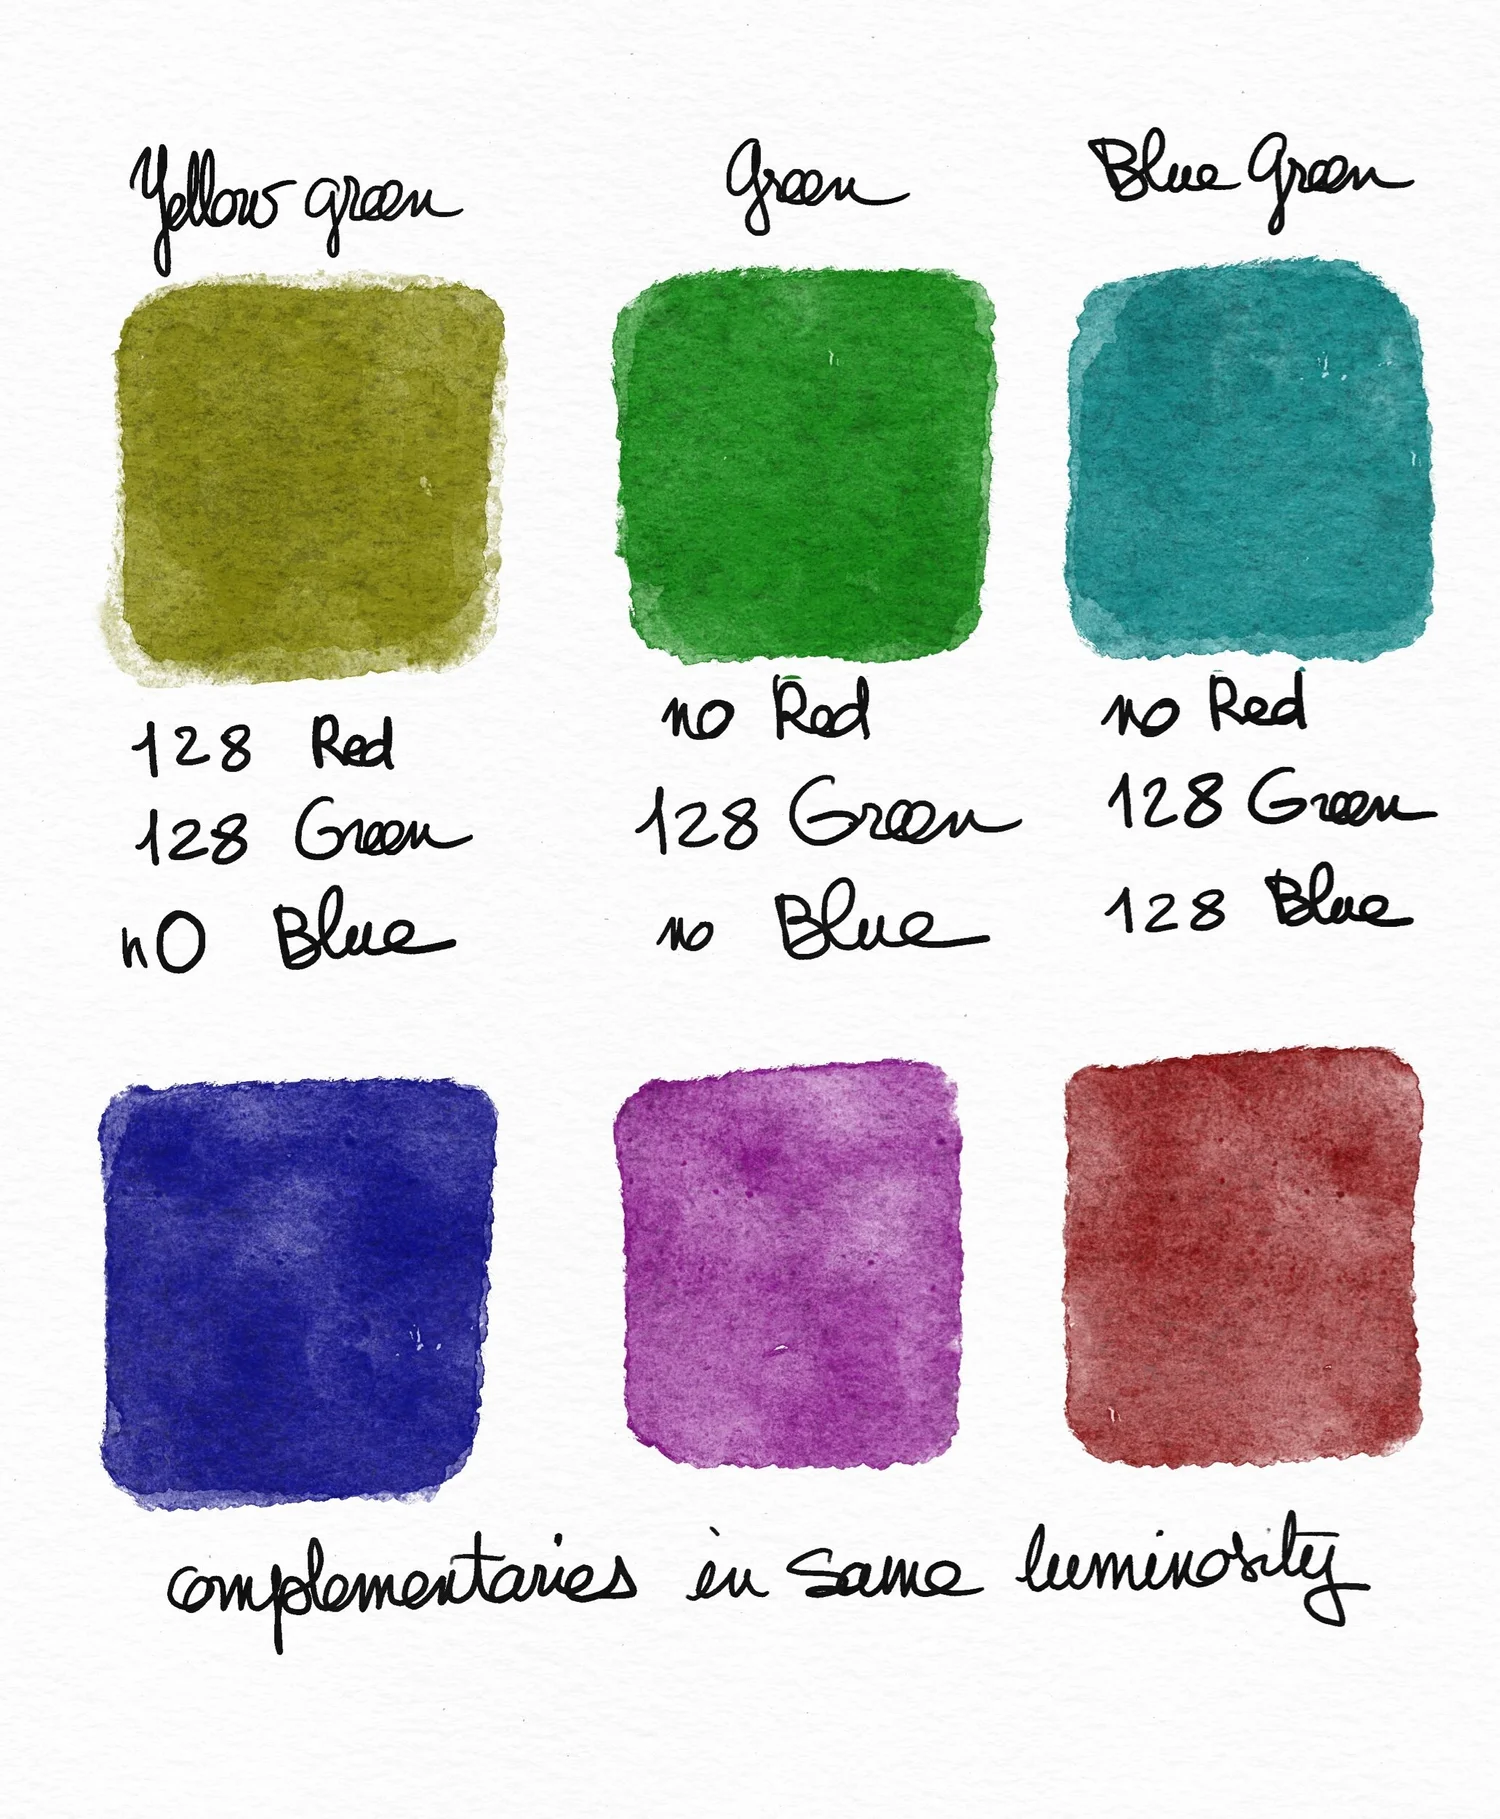 Yellow green
Green
Blue Green
128 Red
128 Green
no Blue
no Red
128 Green
no Blue
no Red
128 Green
128 Blue
complementaries in same luminosity